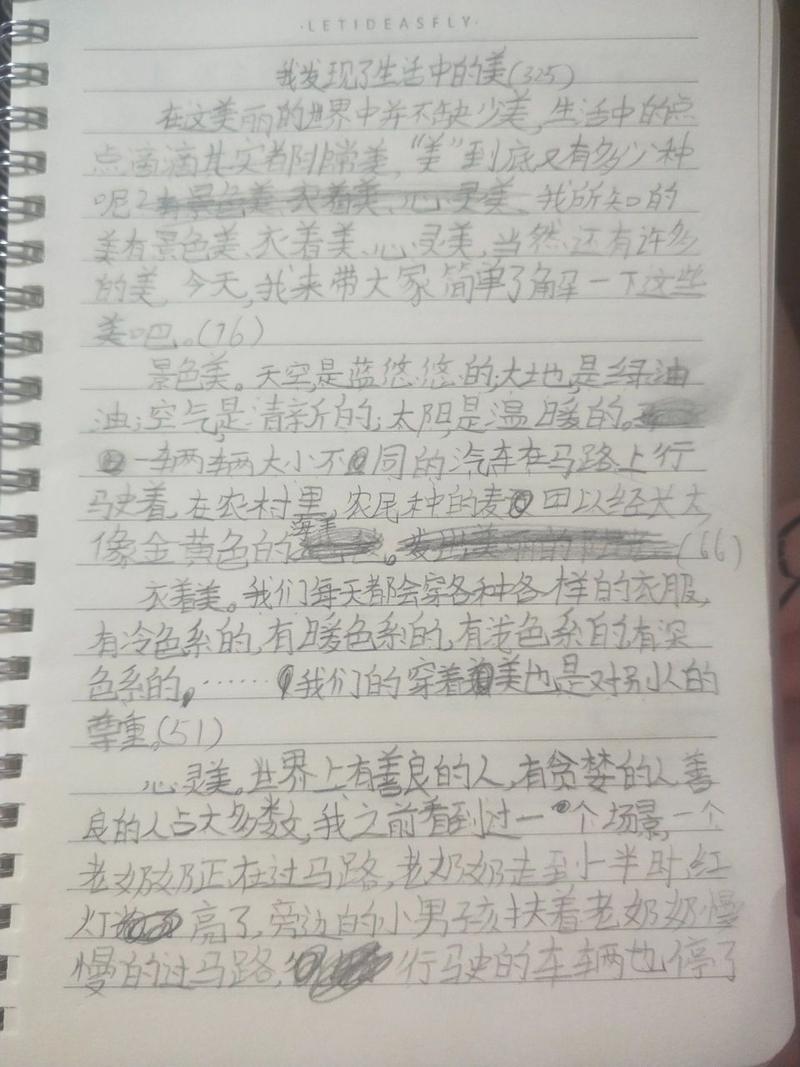 ·LETIDEASFLY·
我发现了生活中的美(325)
在这美丽的世界中并不缺少美,生活中的点
点滴滴其实都非常美,"美"到底又有多少种
呢?有景色美、衣着美、心灵美、我所知的
美有景色美、衣着美、心灵美,当然还有许多
的美,今天,我来带大家简单了解一下这些
美吧。(76)
景色美。天空,是蓝悠悠的;大地,是绿油
油;空气,是清新的;太阳,是温暖的。
一辆辆大小不同的汽车在马路上行
驶着,在农村里,农民种的麦田以经长大,
像金黄色的海美。发出美丽的(66)
衣着美。我们每天都会穿各种各样的衣服,
有冷色系的,有暖色系的,有浅色系的,有深
色系的,……我们的穿着美也是对别人的
尊重。(51)
心灵美。世界上有善良的人,有贪婪的人善
良的人占大多数,我之前看到过一个场景,一个
老奶奶正在过马路,老奶奶走到小半时,红
灯亮了,旁边的小男孩扶着老奶奶慢
慢的过马路,行驶的车辆也停了